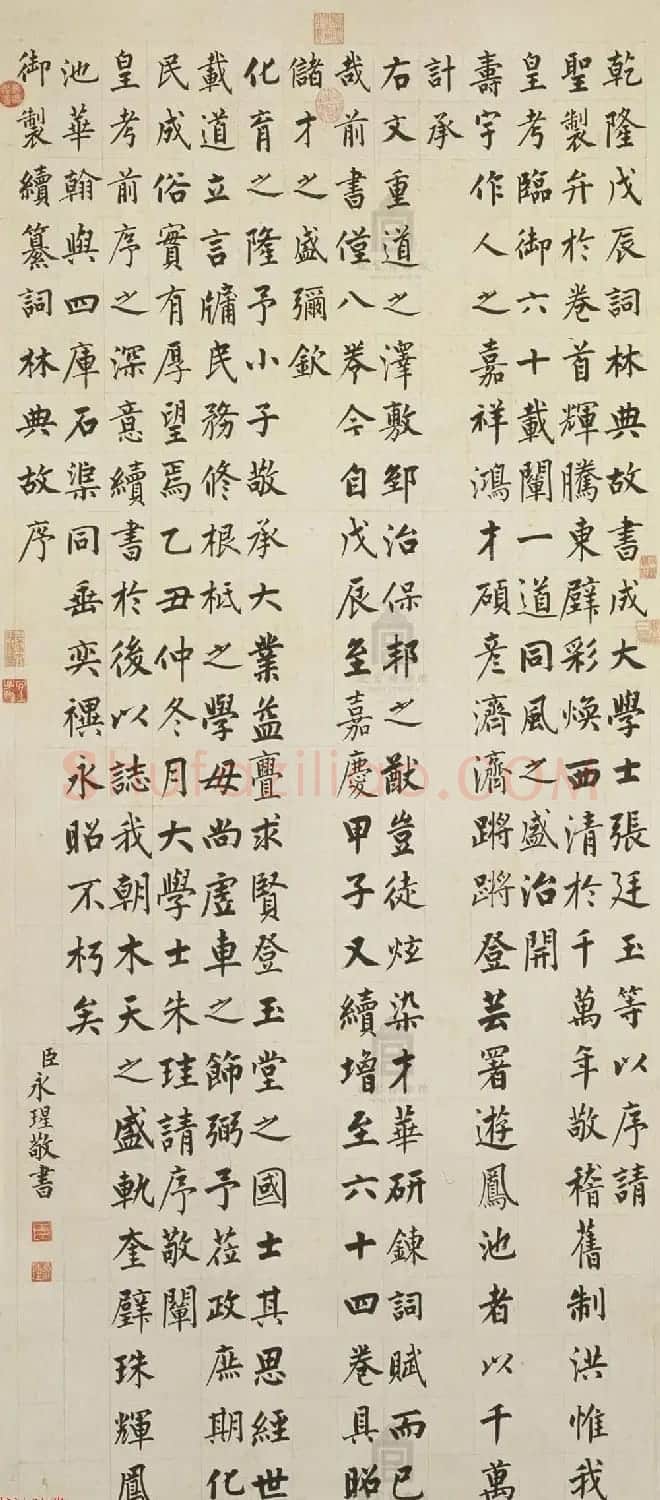 乾隆戊辰詞林典故書成大學士張廷玉等以序請
聖製弁於卷首輝騰東璧彩煥西清於千萬年敬稽舊制洪惟我
皇考臨御六十載闡一道同風之盛治開
壽宇作人之嘉祥鴻才碩彥濟濟蹡蹡登芸署遊鳳池者以千萬
計承
右文重道之澤敷郅治保邦之猷豈徒炫染才華研鍊詞賦而已
哉前書僅八卷今自戊辰至嘉慶甲子又續增至六十四卷具昭
儲才之盛彌欽
化育之隆予小子敬承大業益亹求賢登玉堂之國士其思經世
載道立言牖民務修根柢之學毋尚虛車之飾弼予蒞政庶期化
民成俗實有厚望焉乙丑仲冬月大學士朱珪請序敬闡
皇考前序之深意續書於後以誌我朝木天之盛軌奎璧珠輝鳳
池華翰與四庫石渠同垂奕禩永昭不朽矣
御製續纂詞林典故序
臣永瑆敬書
Shufaziliao.COM